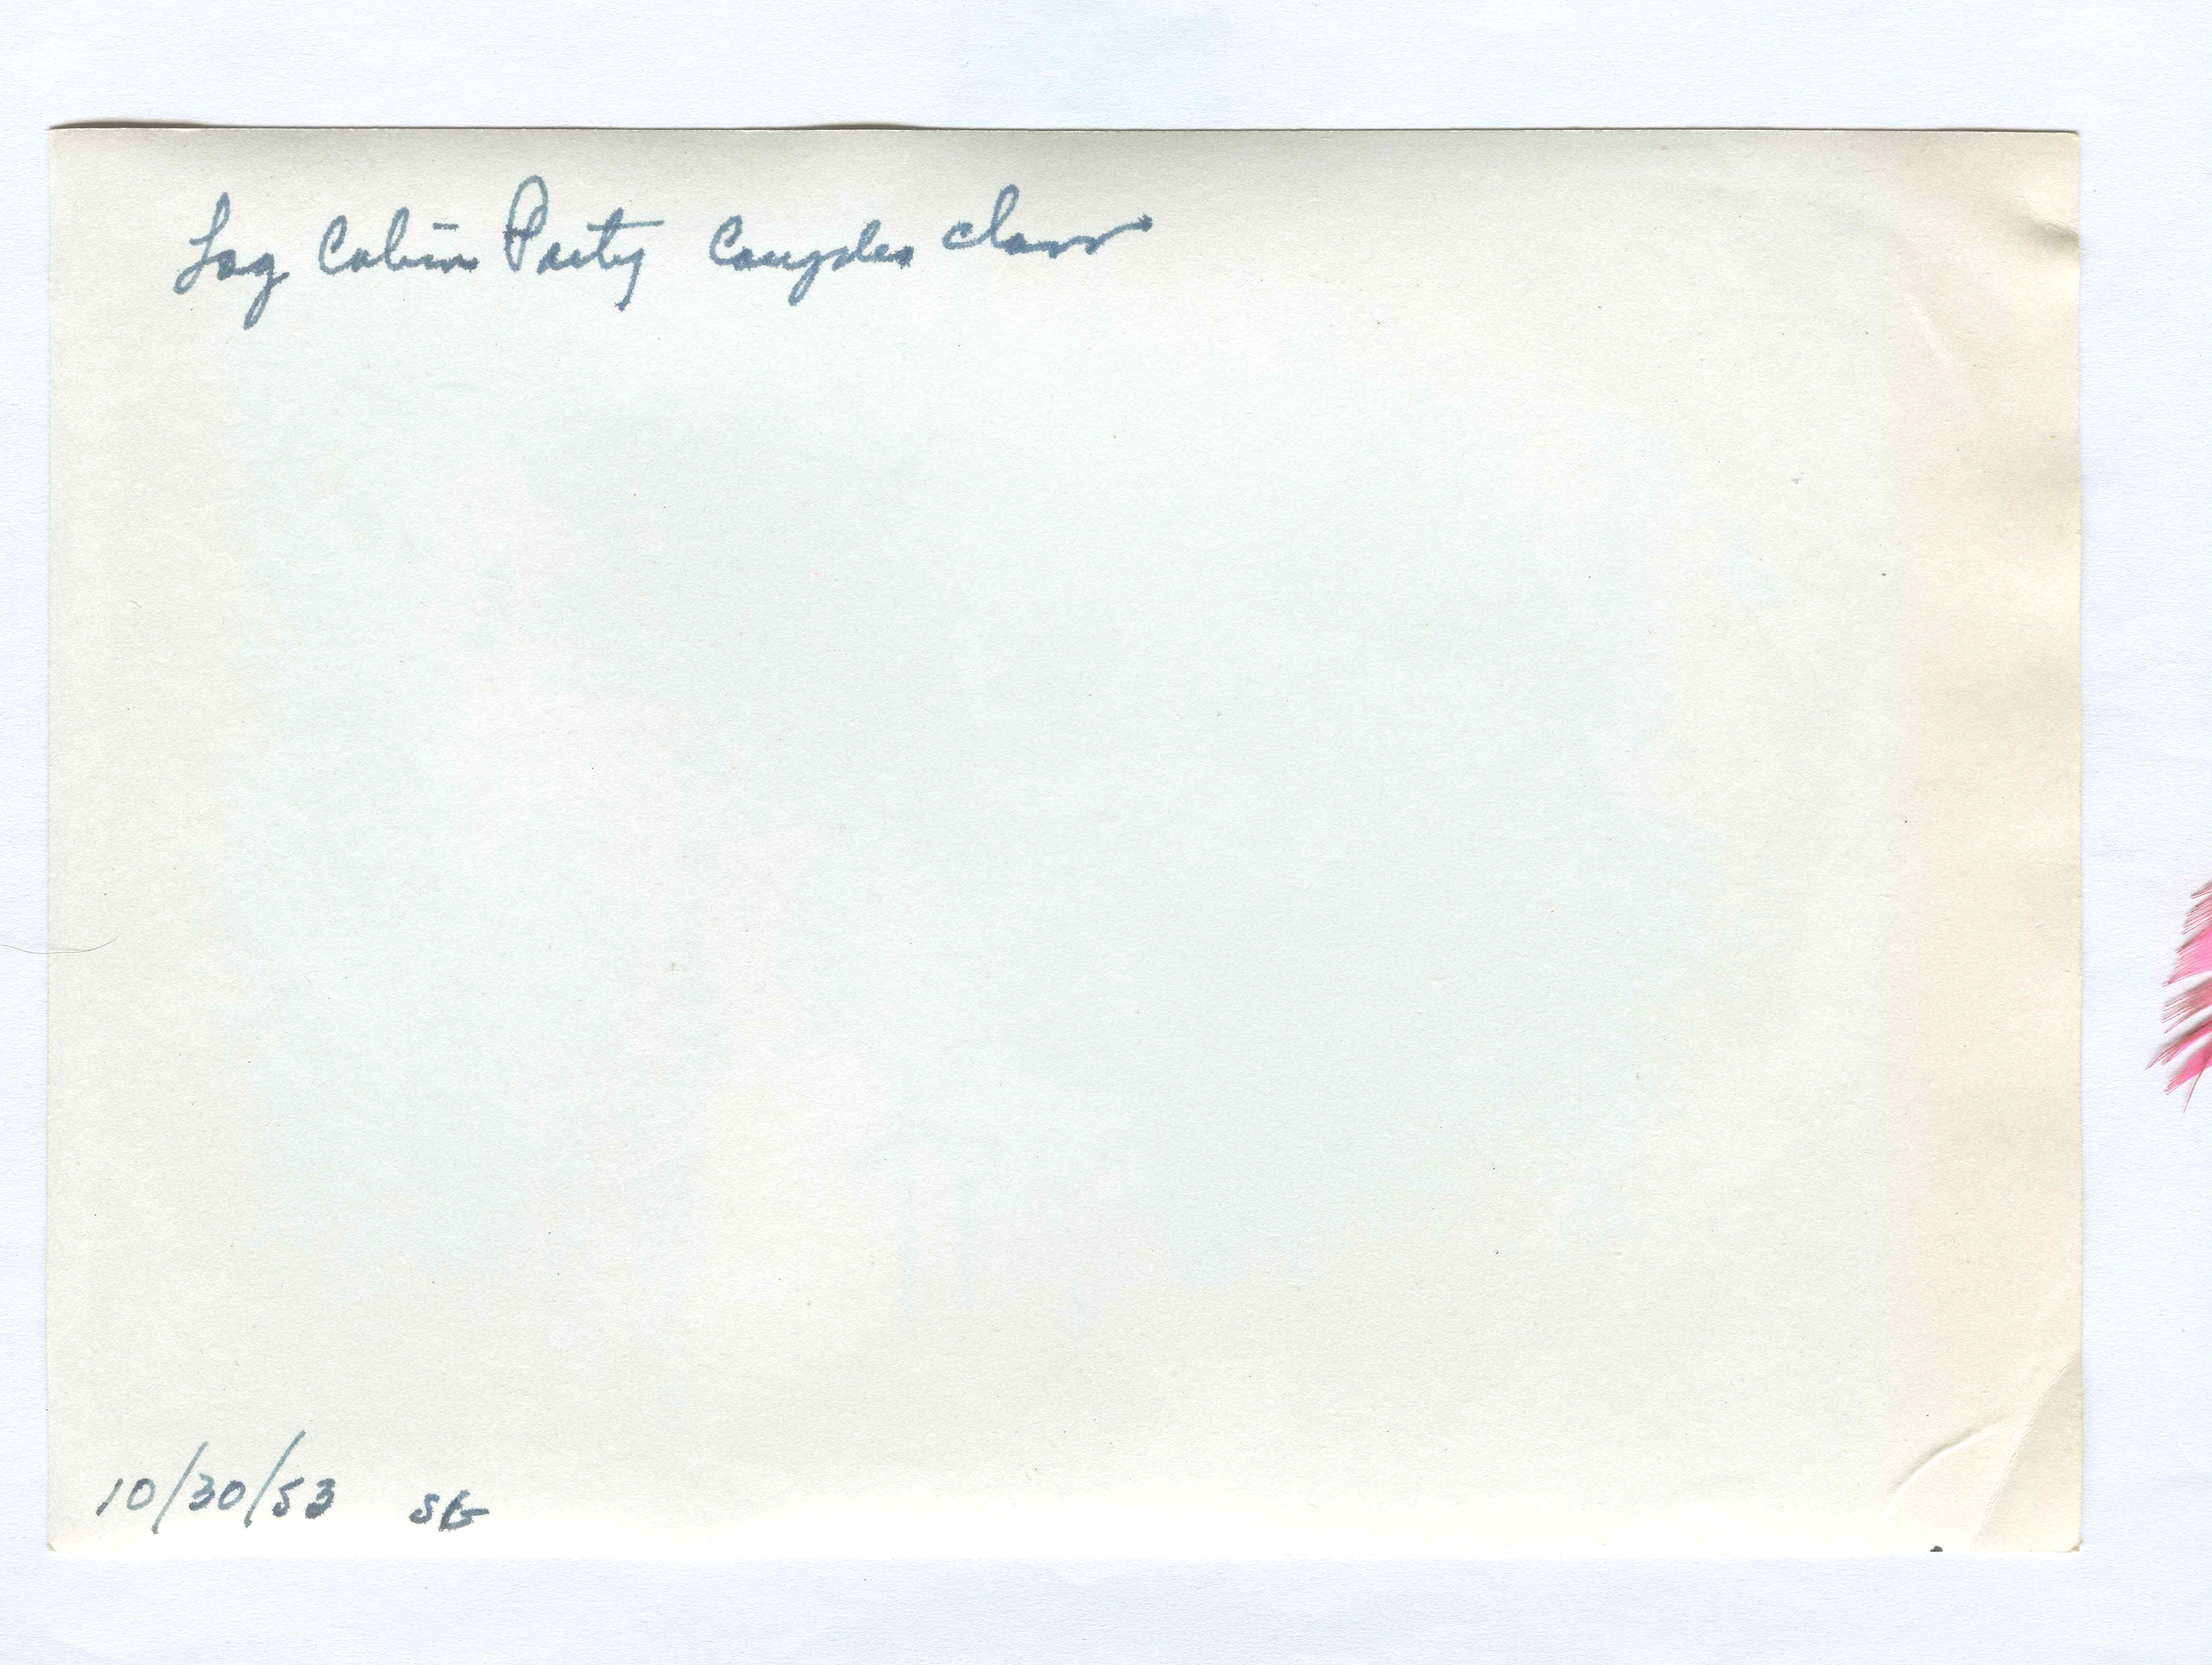 Log Cabin Party Couples class
10/30/53 SG